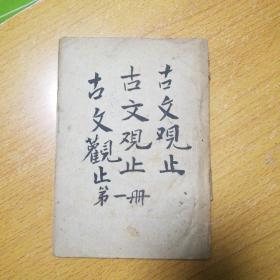 古文观止
古文观止
古文觀止
第一册